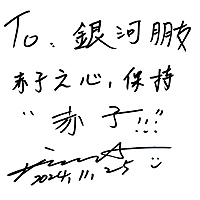 To: 銀河朋友
赤子之心,保持
“赤子!!!”
2024.11.25